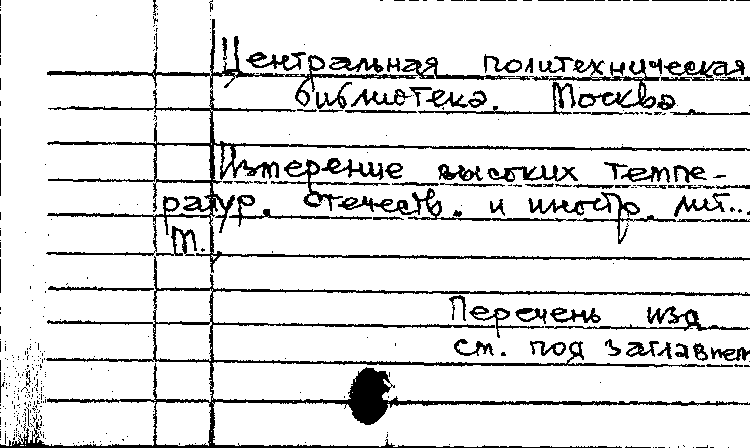 Центральная политехническая
библиотека. Москва.
Измерение высоких темпе-
ратур. Отечеств. и иностр. лит...
М.,
Перечень изд
см. под заглавием